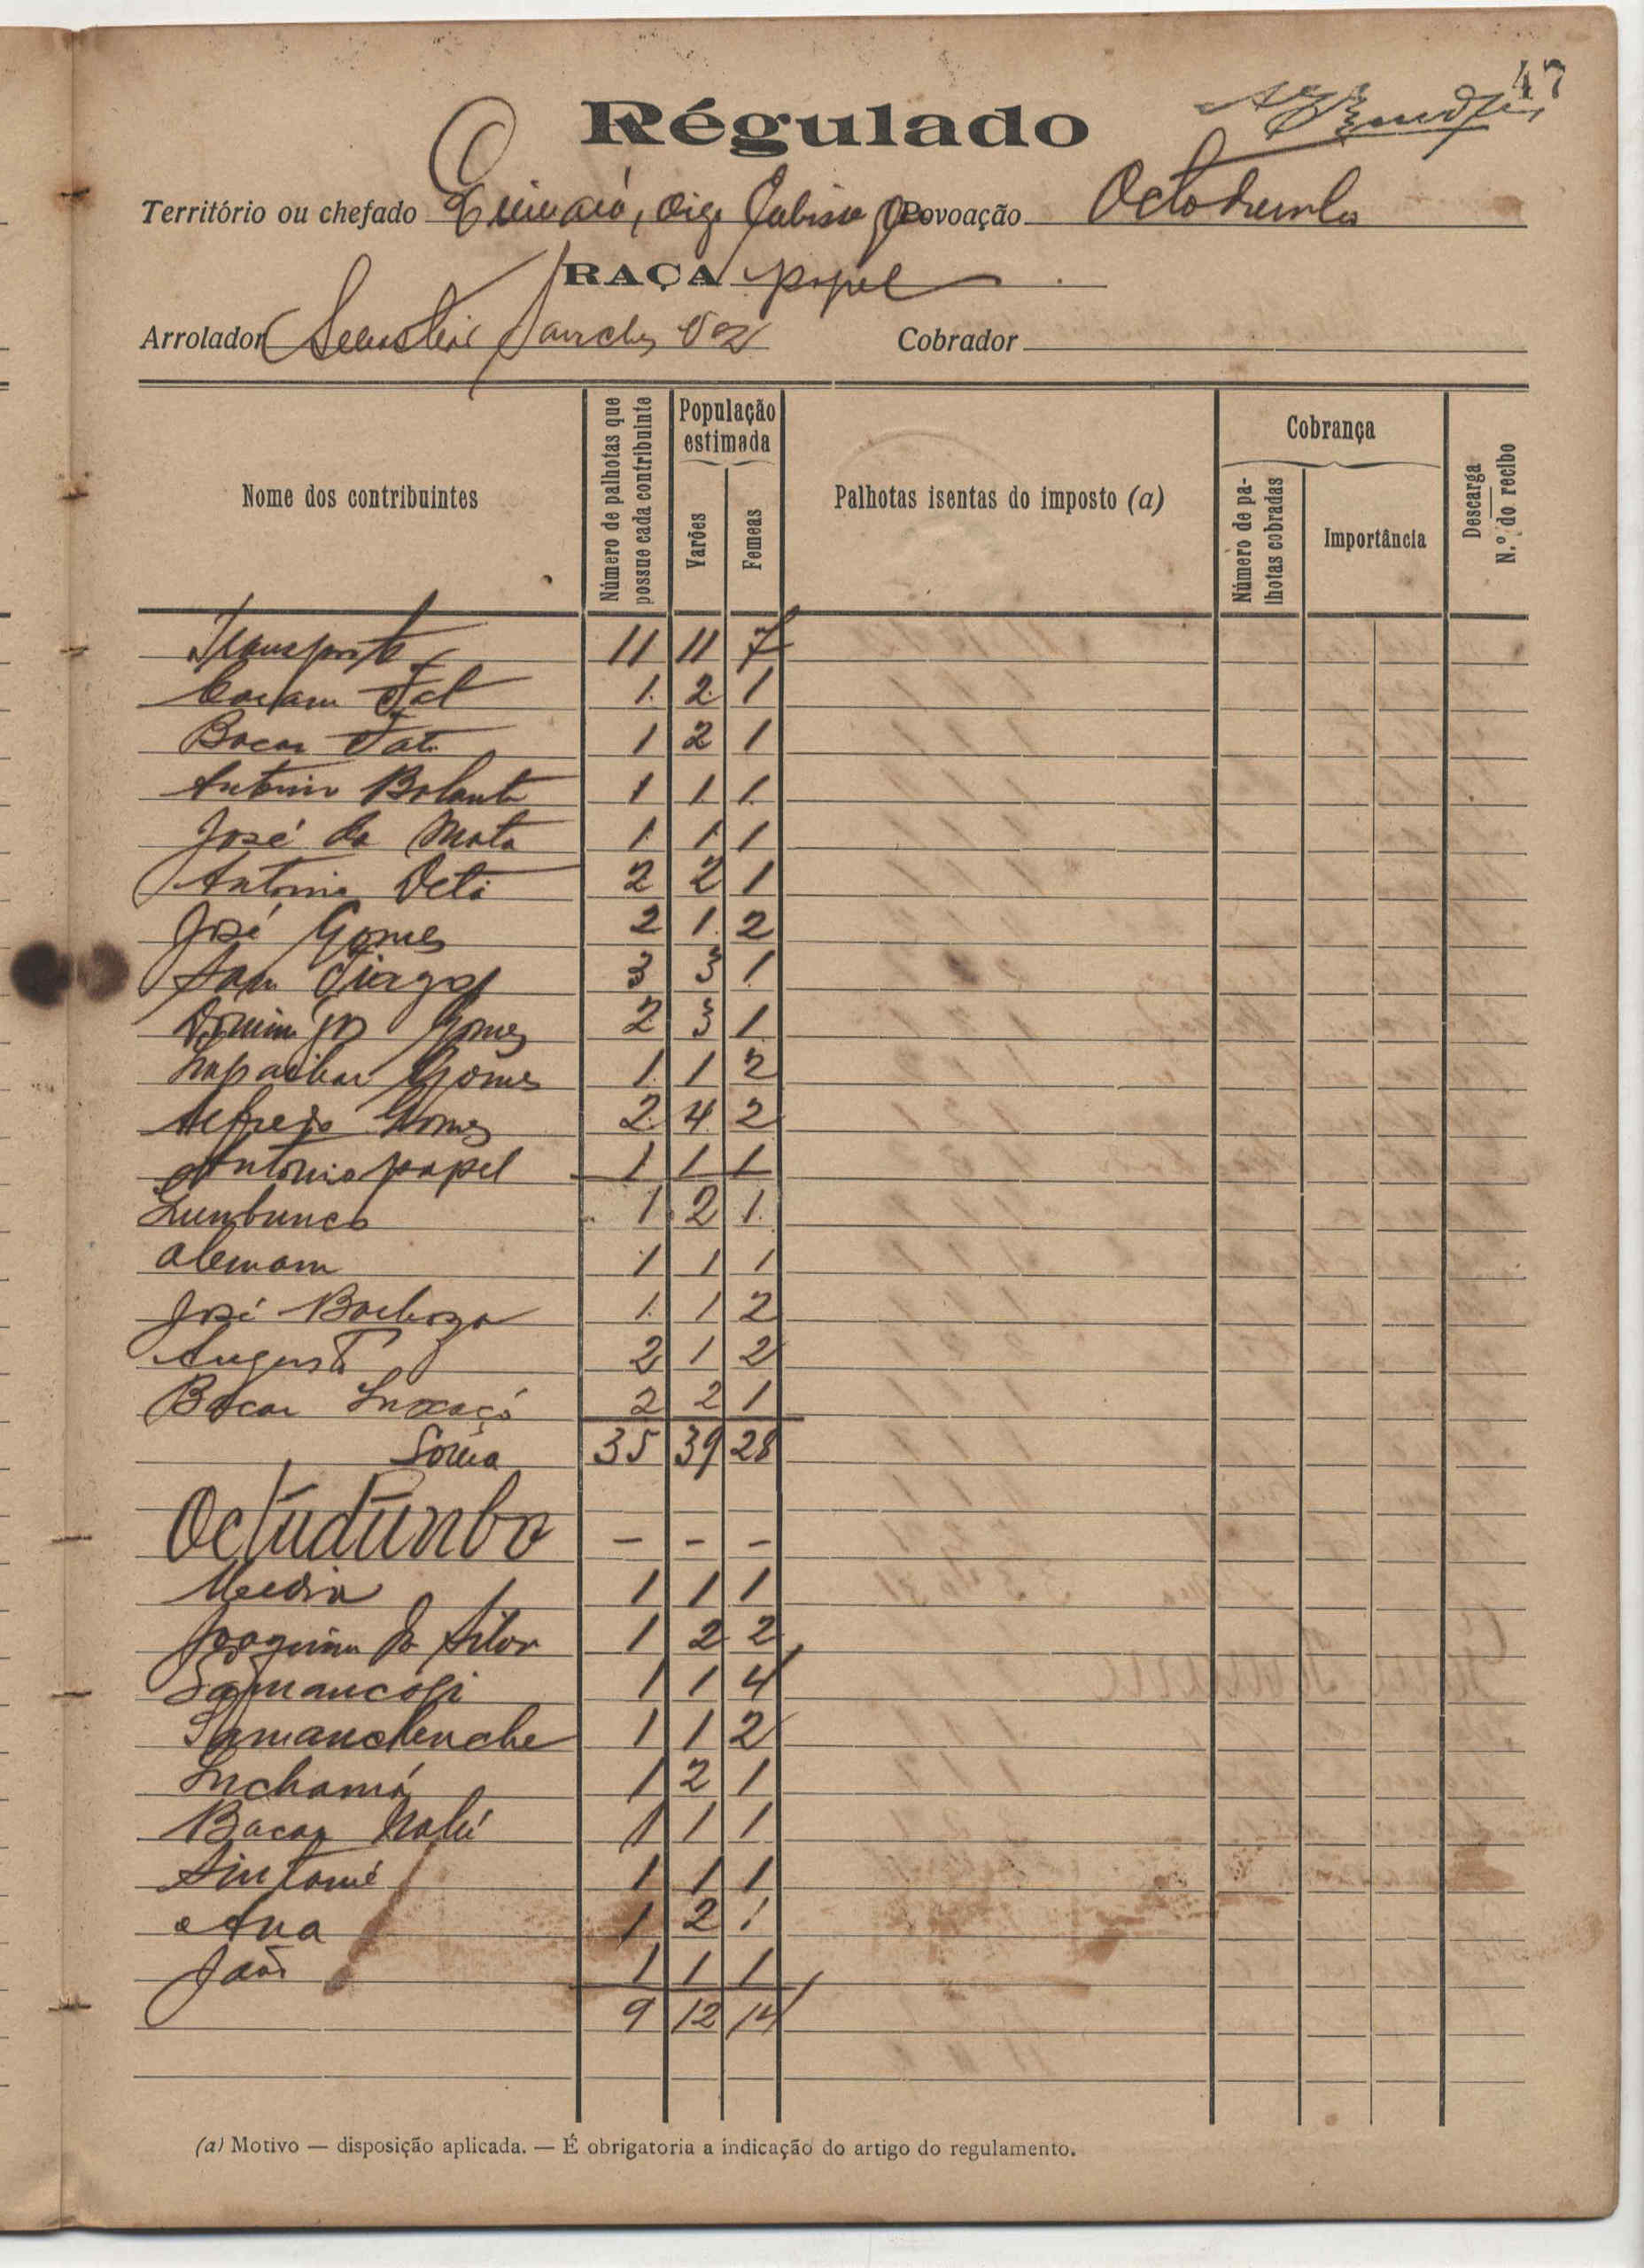 47
Régulado
Território ou chefado Povoação
RAÇA papel
Arrolador Sanches Vaz Cobrador
Nome dos contribuintes
Número de palhotas que possue cada contribuinte
População estimada
Varões
Femeas
Palhotas isentas do imposto (a)
Cobrança
Número de palhotas cobradas
Importância
Descarga
N.º do recibo
Transporte 11 11 7
1 2 1
Bacar 1 2 1
António 1 1 1
José da Mata 1 1 1
Antonio 2 2 1
José Gomes 2 1 2
3 3 1
Domingos Gomes 2 3 1
Gomes 1 1 2
Alfredo Gomes 2 4 2
Antonio papel 1 1 1
1 2 1
alemam 1 1 1
José Barboza 1 1 2
Augusto 2 1 2
Bacar 2 2 1
Soma 35 39 28
Octudunbo - - -
1 1 1
Joaquim da Silva 1 2 2
Samancoli 1 1 4
1 1 2
Inchamá 1 2 1
Bacar Nalú 1 1 1
1 1 1
Ana 1 2 1
João 1 1 1
9 12 14
(a) Motivo — disposição aplicada. — É obrigatoria a indicação do artigo do regulamento.